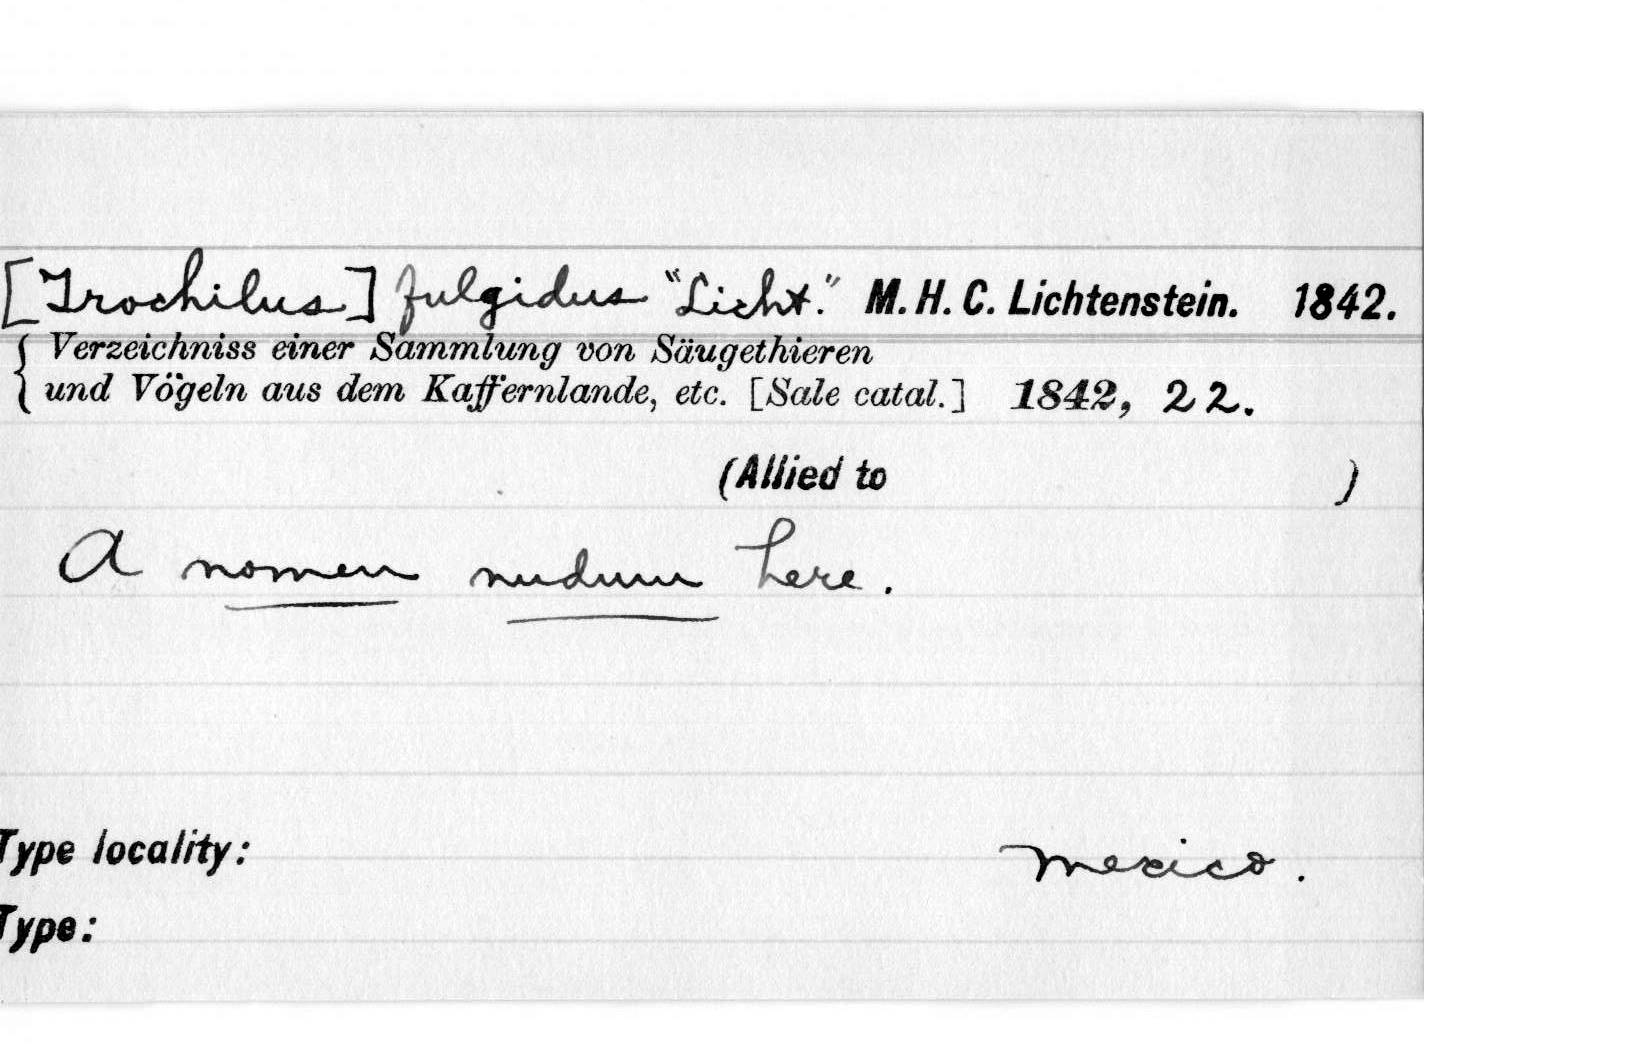 [Trochilus] fulgidus "Licht." M. H. C. Lichtenstein. 1842.
Verzeichniss einer Sammlung von Säugethieren
und Vögeln aus dem Kaffernlande, etc. [Sale catal.] 1842, 22.
(Allied to )
A nomen nudum here.
Type locality: Mexico.
Type: